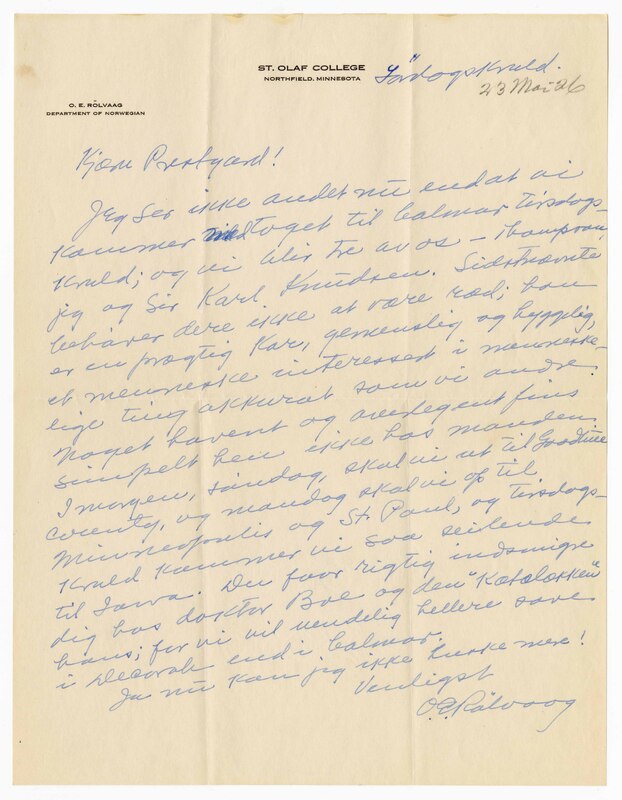 ST. OLAF COLLEGE
NORTHFIELD, MINNESOTA
Lördagskveld.
23 Mai 26
O. E. RÖLVAAG
DEPARTMENT OF NORWEGIAN
Kjære Prestgard!
Jeg ser ikke andet nu end at vi
kommer med toget til Calmar tirsdags-
kveld; og vi blir tre av os – Thompson,
jeg og Sir Karl Knudsen. Sidstnævnte
behøver dere ikke at være ræd; han
er en prægtig kar, gemenslig og hyggelig,
et menneske interessert i menneske-
lige ting akkurat som vi andre.
Noget hovent og overlegent fins
simpelt hen ikke hos manden.
I morgen, söndag, skal vi ut til Goodhue
County, og mandag skal vi op til
Minneapolis og St. Paul, og tirsdags-
kveld kommer vi saa seilende
til Iowa. Du faar rigtig indsmigre
dig hos doktor Boe og den
hans; for vi vil uendelig hellere sove
i Decorah end i Calmar.
Ja nu kan jeg ikke huske mere!
Venligst
O.E. Rölvaag